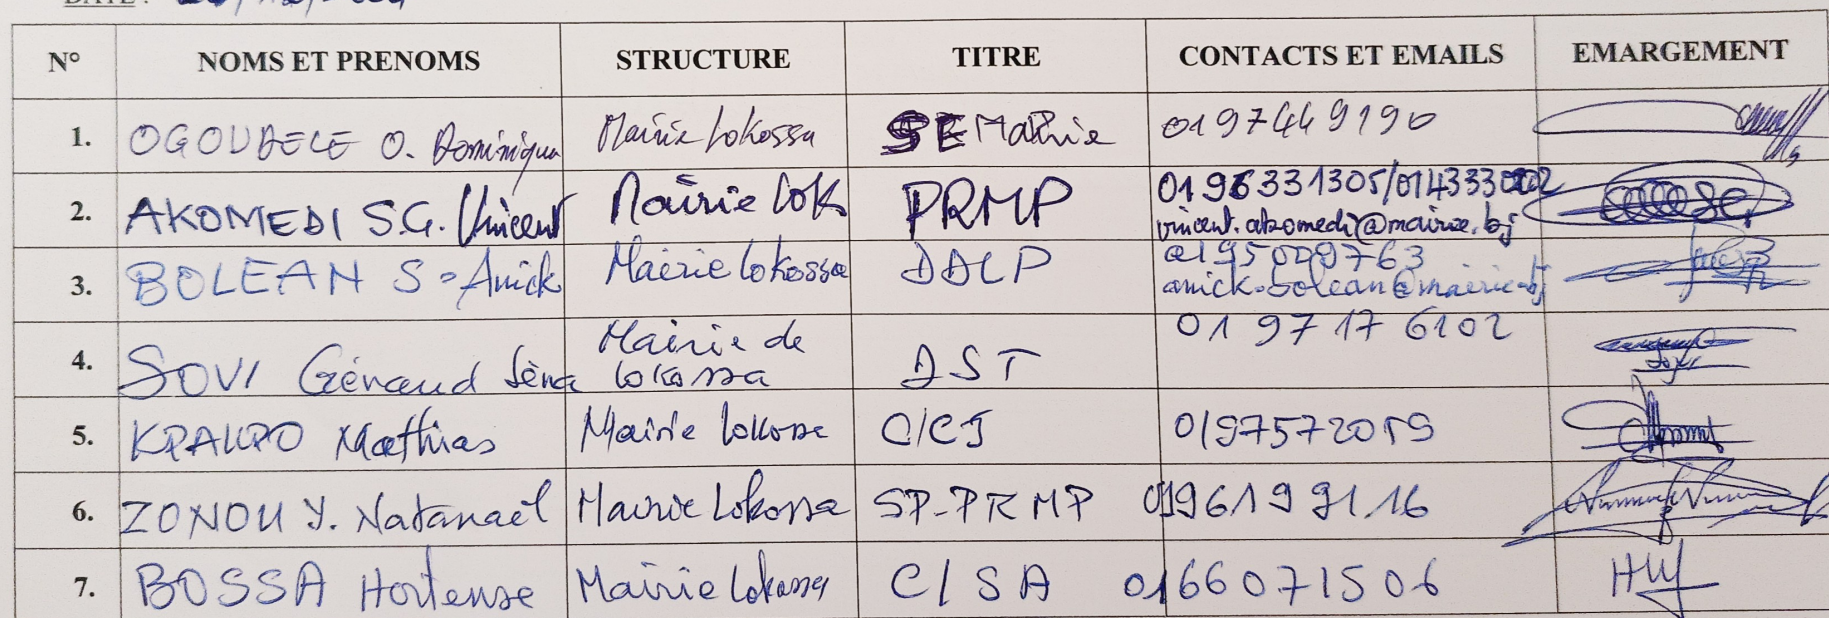 DATE :
N° NOMS ET PRENOMS STRUCTURE TITRE CONTACTS ET EMAILS EMARGEMENT
1. OGOUDELE O. Dominique Mairie Lokossa SE Mairie 0197449190
2. AKOMEDI S.G. Vincent Mairie Lok PRMP 0196331305/
vincent.akomedi@mairie.bj
3. BOLEAN S. Anick Mairie Lokossa DDLP 0195009763
anick.bolean@mairie.bj
4. SOVI Géraud Sèna Mairie de Lokossa DST 01 97 17 6102
5. KPAKPO Mathias Mairie Lokossa 0197572019
6. ZONOU Y. Natanaël Mairie Lokossa SP-PRMP 0196199116
7. BOSSA Hortense Mairie Lokossa C/SA 0166071506